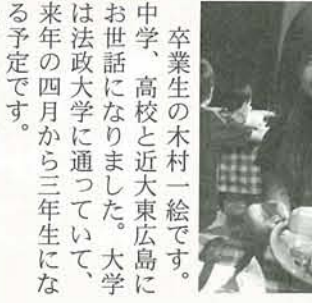 卒業生の木村一絵です。
中学、高校と近大東広島に
お世話になりました。大学
は法政大学に通っていて、
来年の四月から三年生にな
る予定です。